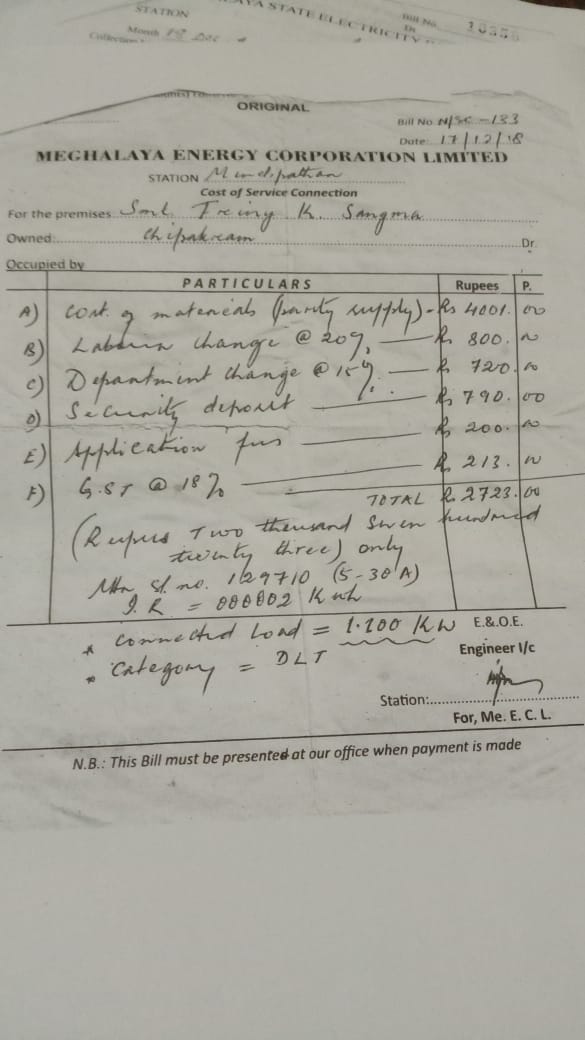 STATION
STATE ELECTRICITY
Bill No.
Month
ORIGINAL
Bill No N/SC-133
Date: 17/12/18
MEGHALAYA ENERGY CORPORATION LIMITED
STATION Mendipathar
Cost of Service Connection
For the premises Smt. Treing K. Sangma
Owned: Chipakream Dr.
Occupied by
PARTICULARS Rupees P.
A) Cost. of materials (party supply) - Rs 4001. 00
B) Labour Charge @ 20%, — Rs 800. 00
C) Department Charge @ 15%. — Rs 720. 00
D) Security deposit — Rs 790. 00
E) Application fees — Rs 200. 00
F) G.ST @ 18% — Rs 213. 00
TOTAL Rs 2723. 00
(Rupees Two thousand Seven hundred
twenty three) only
Mtr Sl. no. 1129710 (5-30A)
I.R = 000002 Kwh
* Connected Load = 1.200 KW E.&.O.E.
* Category = DLT Engineer I/c
Station:
For, Me. E. C. L.
N.B.: This Bill must be presented at our office when payment is made